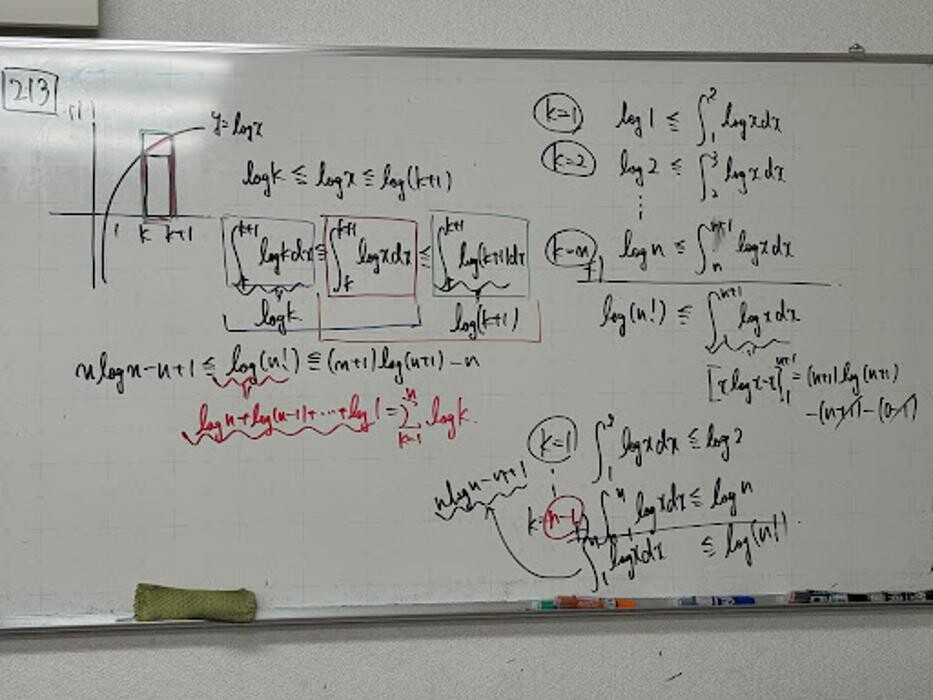 213
y=logx
1 k k+1
logk ≦ logx ≦ log(k+1)
∫_k^{k+1} logk dx ≦ ∫_k^{k+1} logx dx ≦ ∫_k^{k+1} log(k+1) dx
logk log(k+1)
nlogn-n+1 ≦ log(n!) ≦ (n+1)log(n+1)-n
logn+log(n-1)+…+log1 = Σ_{k=1}^{n} logk.
k=1 log1 ≦ ∫_1^2 logx dx
k=2 log2 ≦ ∫_2^3 logx dx
⋮
k=n logn ≦ ∫_n^{n+1} logx dx
+)
log(n!) ≦ ∫_1^{n+1} logx dx
[xlogx-x]_1^{n+1} = (n+1)log(n+1)
-(n+1)-(0-1)
k=1 ∫_1^2 logx dx ≦ log2
⋮
nlogn-n+1
k=n-1 ∫_{n-1}^n logx dx ≦ logn
∫_1^n logx dx ≦ log(n!)